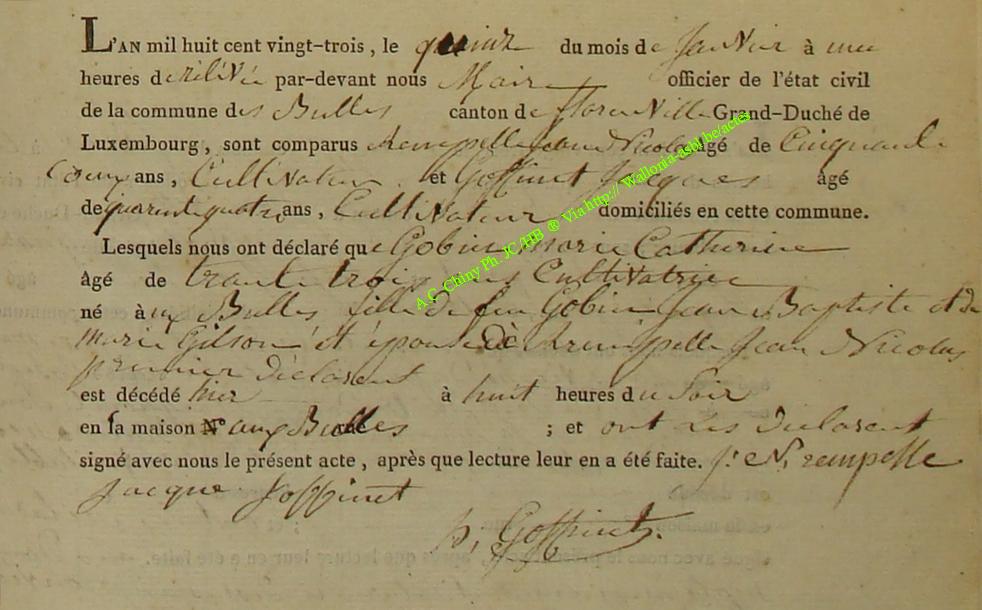 L'AN mil huit cent vingt-trois, le quinze du mois de janvier à une
heures de rélévée par-devant nous Maire officier de l'état civil
de la commune des Bulles canton de florenville Grand-Duché de
Luxembourg, sont comparus rempelle jean Nicolas âgé de Cinquante
ans, Cultivateur et Goffinet Jacques âgé
de quarente quatre ans, Cultivateur domiciliés en cette commune.
Lesquels nous ont déclaré que Gobin marie Catherine
âgé de trante trois ans Cultivatrice
né à aux Bulles fille de feu Gobin Jean Baptiste et de
marie Gilson et épouse de rempelle Jean Nicolas
premier déclarent
est décédé hier à huit heures du soir
en sa maison N° aux Bulles ; et ont les déclarent
signé avec nous le présent acte, après que lecture leur en a été faite. j. N. rempelle
jacque goffinet
Goffinet.
A.C. Chiny Ph. JC/HB ® Via http:// Wallonia-asbl.be/actes